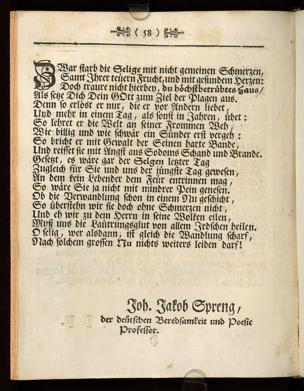 ( 58 )
ZWar starb die Selige mit nicht gemeinen Schmerzen,
Samt Jhrer teüern Frucht, und mit gesundem Herzen:
Doch traure nicht hierbey, du höchstberübtes Haus/
Als setze Dich Dein GOtt zum Ziel der Plagen aus.
Denn so erlöst er nur, die er vor Andern liebet,
Und mehr in einem Tag, als sonst in Jahren, übet:
So lehret er die Welt an seiner Frommen Weh,
Wie billig und wie schwär ein Sünder erst vergeh:
So bricht er mit Gewalt der Seinen harte Bande,
Und reisset sie mit Angst aus Sodoms Schand und Brande.
Gesetzt, es wäre gar der Selgen letzter Tag
Zugleich für Sie und uns der jüngste Tag gewesen,
An dem kein Lebender dem Feür entrinnen mag,
So wäre Sie ja nicht mit mindrer Pein genesen.
Ob die Verwandlung schon in einem Nu geschicht,
So überstehn wir sie doch ohne Schmerzen nicht,
Und eh wir zu dem Herrn in seine Wolken eilen,
Muß uns die Laütrungsglut von allem Jrdschen heilen.
O selig, wer alsdann, ist gleich die Wandlung scharf,
Nach solchem grossen Nu nichts weiters leiden darf!
Joh. Jakob Spreng,
der deütschen Beredsamkeit und Poesie
Professor.